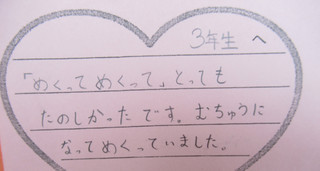 3年生へ
「めくってめくって」とっても
たのしかったです。むちゅうに
なってめくっていました。